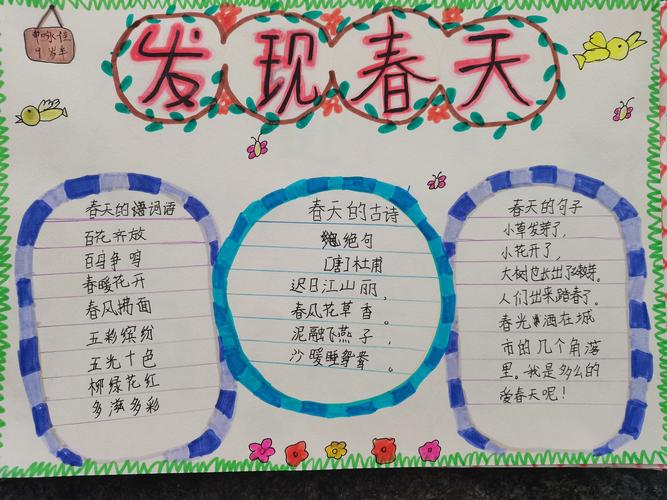 申咏佳
9岁半
发现春天
春天的词语
百花齐放
百鸟争鸣
春暖花开
春风拂面
五彩缤纷
五光十色
柳绿花红
多滋多彩
春天的古诗
绝句
[唐]杜甫
迟日江山丽,
春风花草香。
泥融飞燕子,
沙暖睡鸳鸯。
春天的句子
小草发芽了,
小花开了,
大树也长出了嫩芽。
人们出来踏春了。
春光洒在城
市的几个角落
里。我是多么的
爱春天呢!